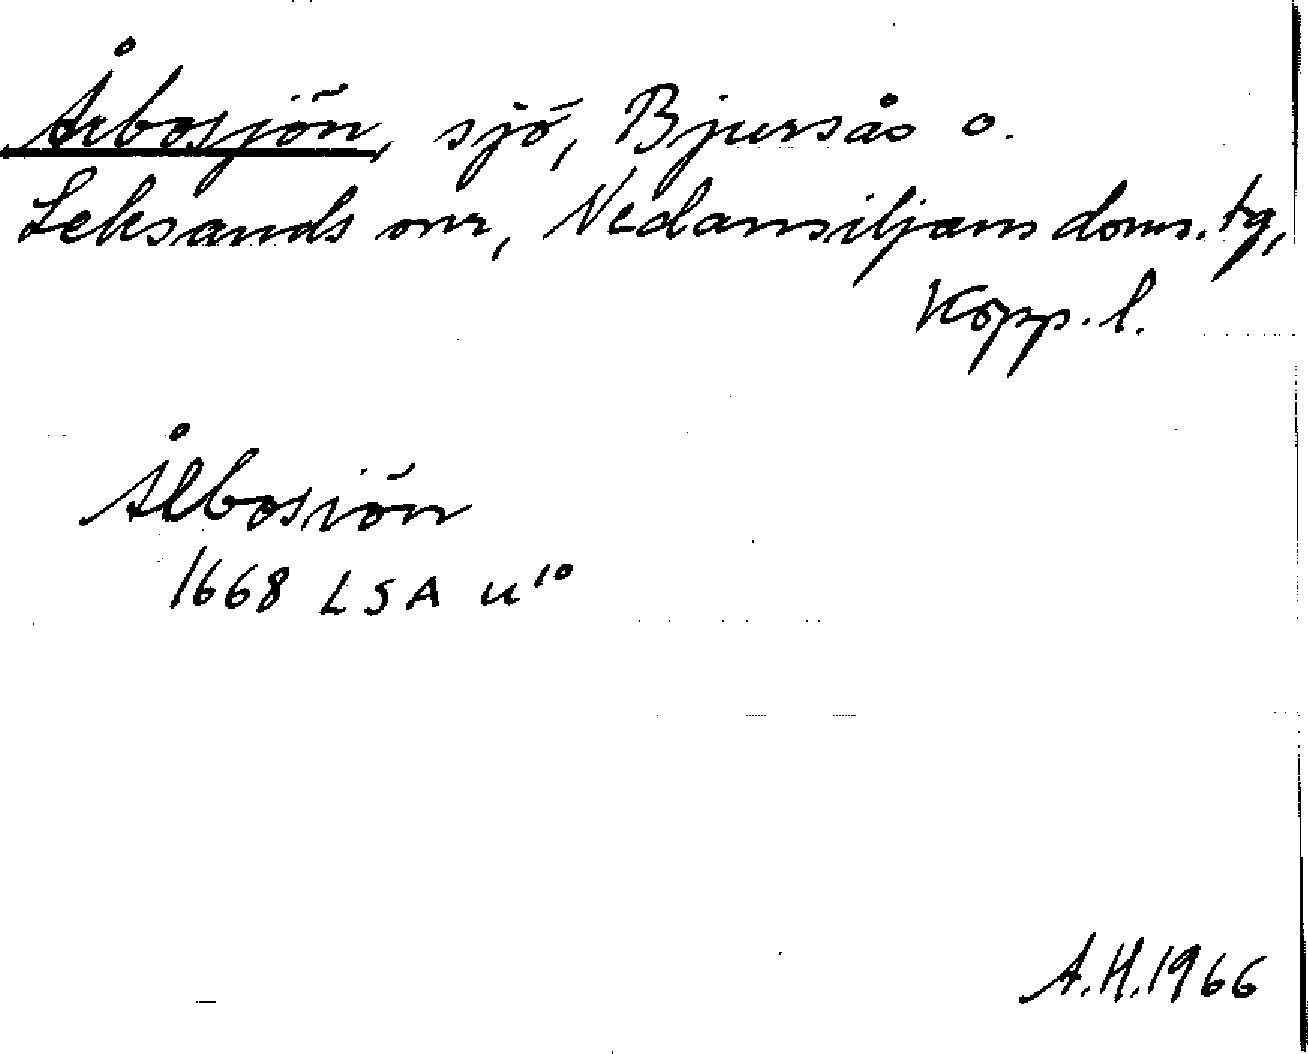 Årbosjön, sjö, Bjursås o.
Leksands snr, Nedansiljans doms. tg,
Kopp. l.
Ålbosiön
1668 LSA u¹⁰
A.H. 1966